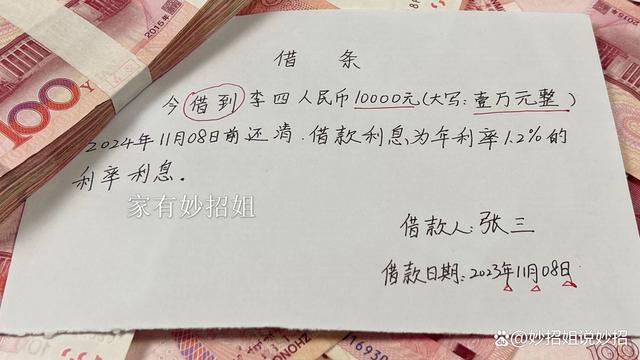 借 条
今借到李四人民币10000元(大写:壹万元整)
2024年11月08日前还清.借款利息为年利率1.2%的
利率利息。
家有妙招姐
借款人:张三
借款日期:2023年11月08日
2015年
100
@妙招姐说妙招